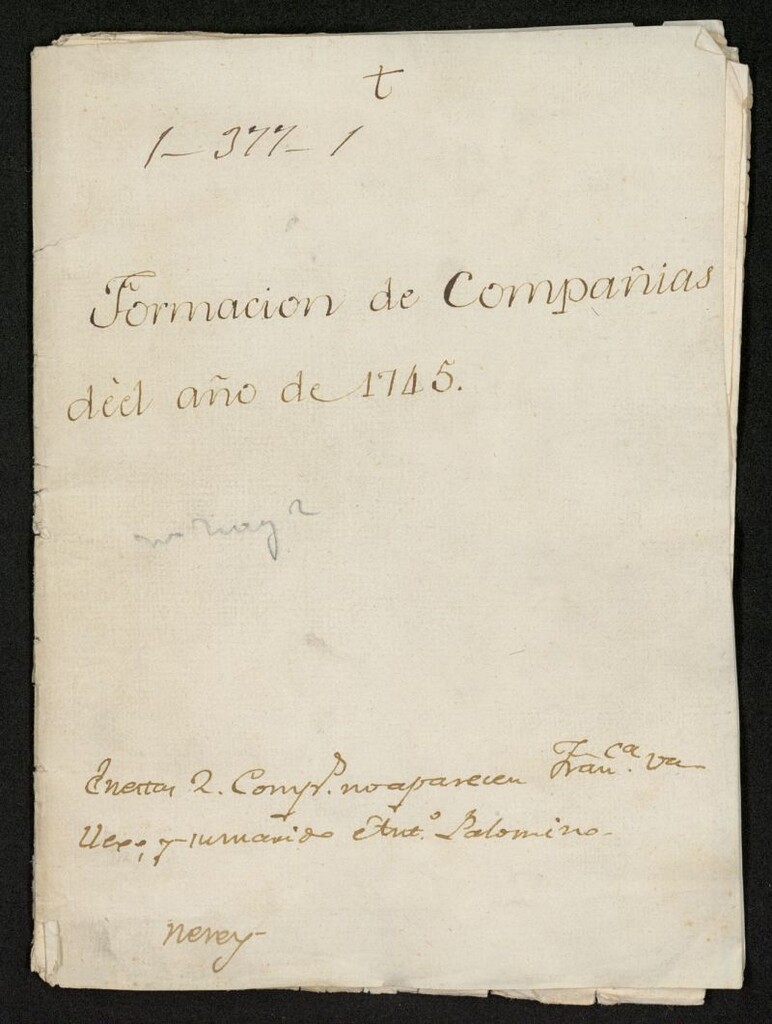 t
1-377-1
Formacion de Compañias
dèel año de 1745.
no hay 2
Enestas 2. Comp.s no aparecen Fran.ca Va
lle, y su marido Ant.o Palomino.